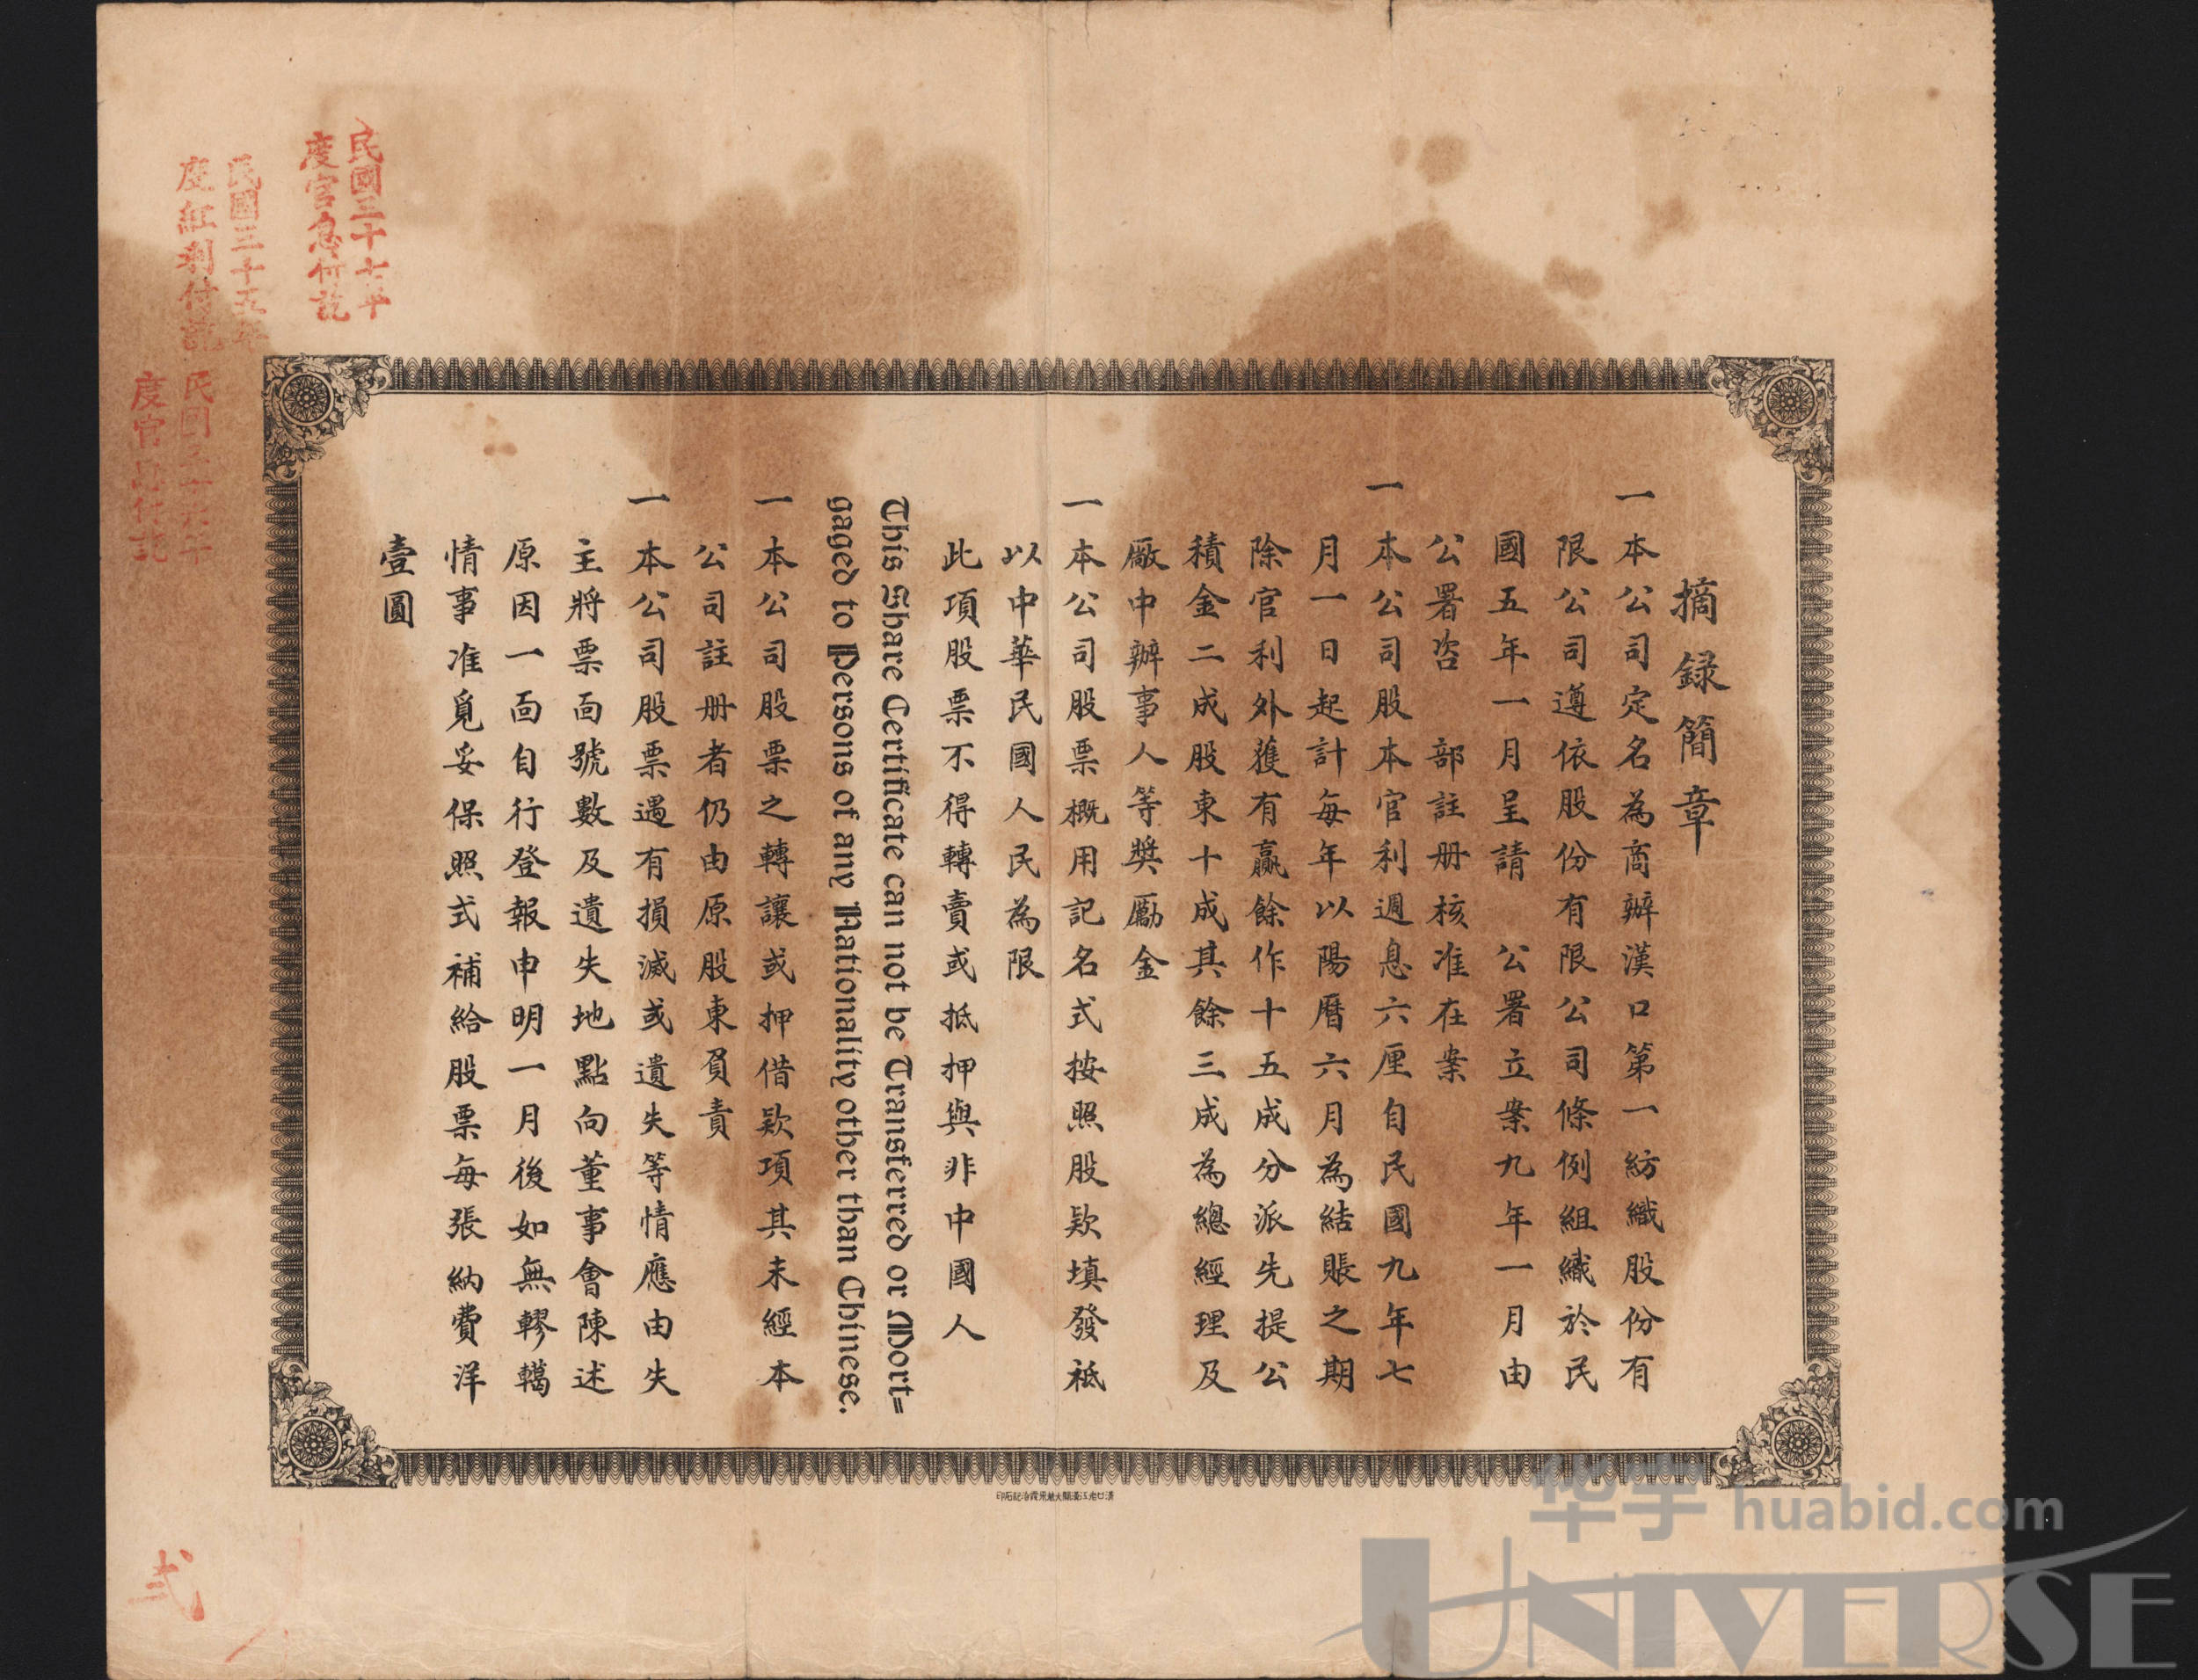 摘録簡章
一本公司定名為商辦漢口第一紡織股份有
限公司遵依股份有限公司條例組織於民
國五年一月呈請 公署立案九年一月由
公署咨 部註册核准在案
一本公司股本官利週息六厘自民國九年七
月一日起計每年以陽曆六月為結賬之期
除官利外獲有贏餘作十五成分派先提公
積金二成股東十成其餘三成為總經理及
廠中辦事人等獎勵金
一本公司股票概用記名式按照股欵填發祗
以中華民國人民為限
此項股票不得轉賣或抵押與非中國人
This Share Certificate can not be Transferred or Mort=
gaged to Persons of any Nationality other than Chinese.
一本公司股票之轉讓或押借欵項其未經本
公司註册者仍由原股東負責
一本公司股票遇有損滅或遺失等情應由失
主將票面號數及遺失地點向董事會陳述
原因一面自行登報申明一月後如無轇轕
情事准覓妥保照式補給股票每張納費洋
壹圓
民國三十七年
度官息付訖
民國三十五年
度紅利付訖
民國三十六年
度官息付訖
弍
华宇 huabid.com
UNIVERSE